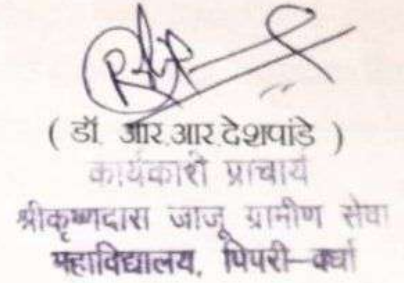 ( डॉ. आर.आर.देशपांडे )
कार्यकारी प्राचार्य
श्रीकृष्णदास जाजू ग्रामीण सेवा
महाविद्यालय, पिपरी-वर्धा